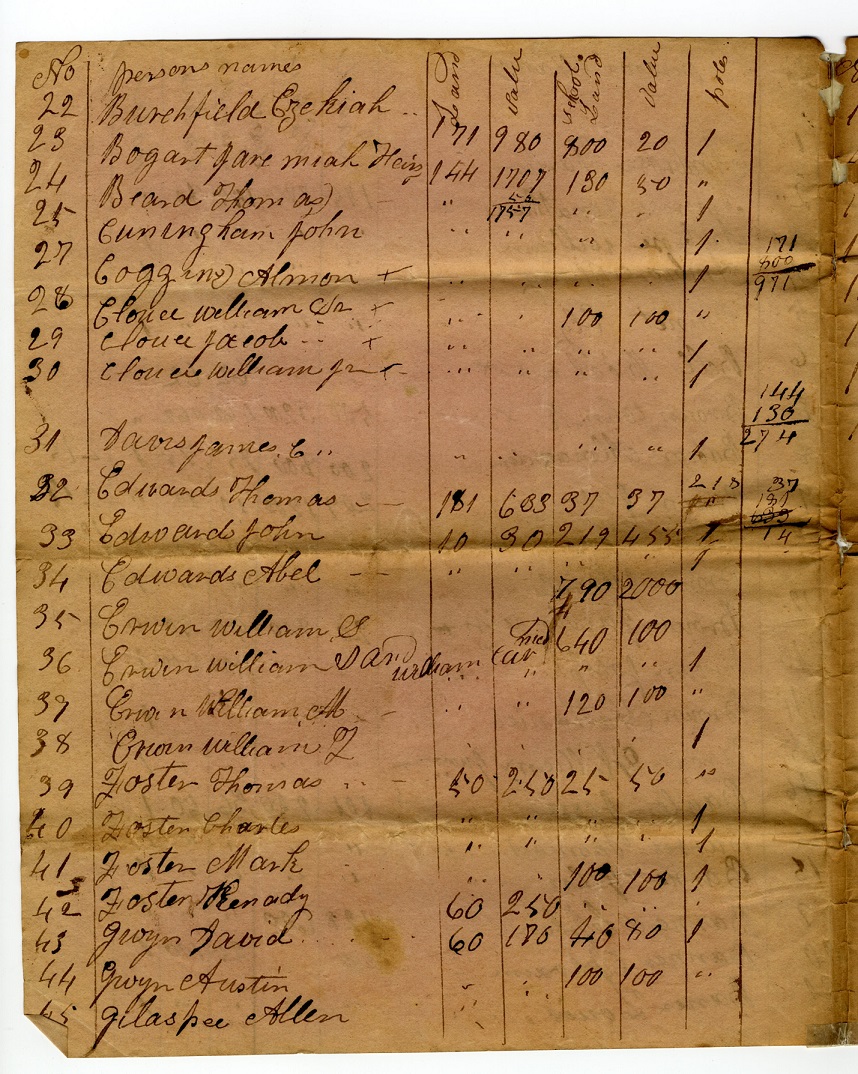 No persons names Land value School Land value poles
22 Burchfield Ezekiah .. 171 980 800 20 1
23 Bogart Jaremiah Heirs 144 1707 130 50 "
50
1757
24 Beard Thomas - " " " 1
25 Cuningham John " " " " 1
171
800
971
27 Coggins Almon x " " " " 1
28 Clouee william Sr x " " 100 100 "
29 Clouee Jacob x " " " " 1
30 Clouee william Jr x " " " " 1
144
130
274
31 Davis James C " " " " " 1
32 Edwards Thomas - - 181 633 37 37
218
37
181
633
14
33 Edwards John 10 30 219 455 1
34 Edwards Abel - - " " " " 1
790 2000
35 Erwin william S 640 100
36 Erwin william S and william " " " " 1
37 Erwin William M - " " 120 100 "
38 Erwin william Z 1
39 Foster Thomas " - 50 250 25 50 "
40 Foster Charles " " " " 1
41 Foster Mark " " " " 1
42 Foster Kenady 60 250 100 100 1
43 Gwyn David 60 170 40 80 1
44 Gwyn Austin " " 100 100 "
45 Gilaspee Allen